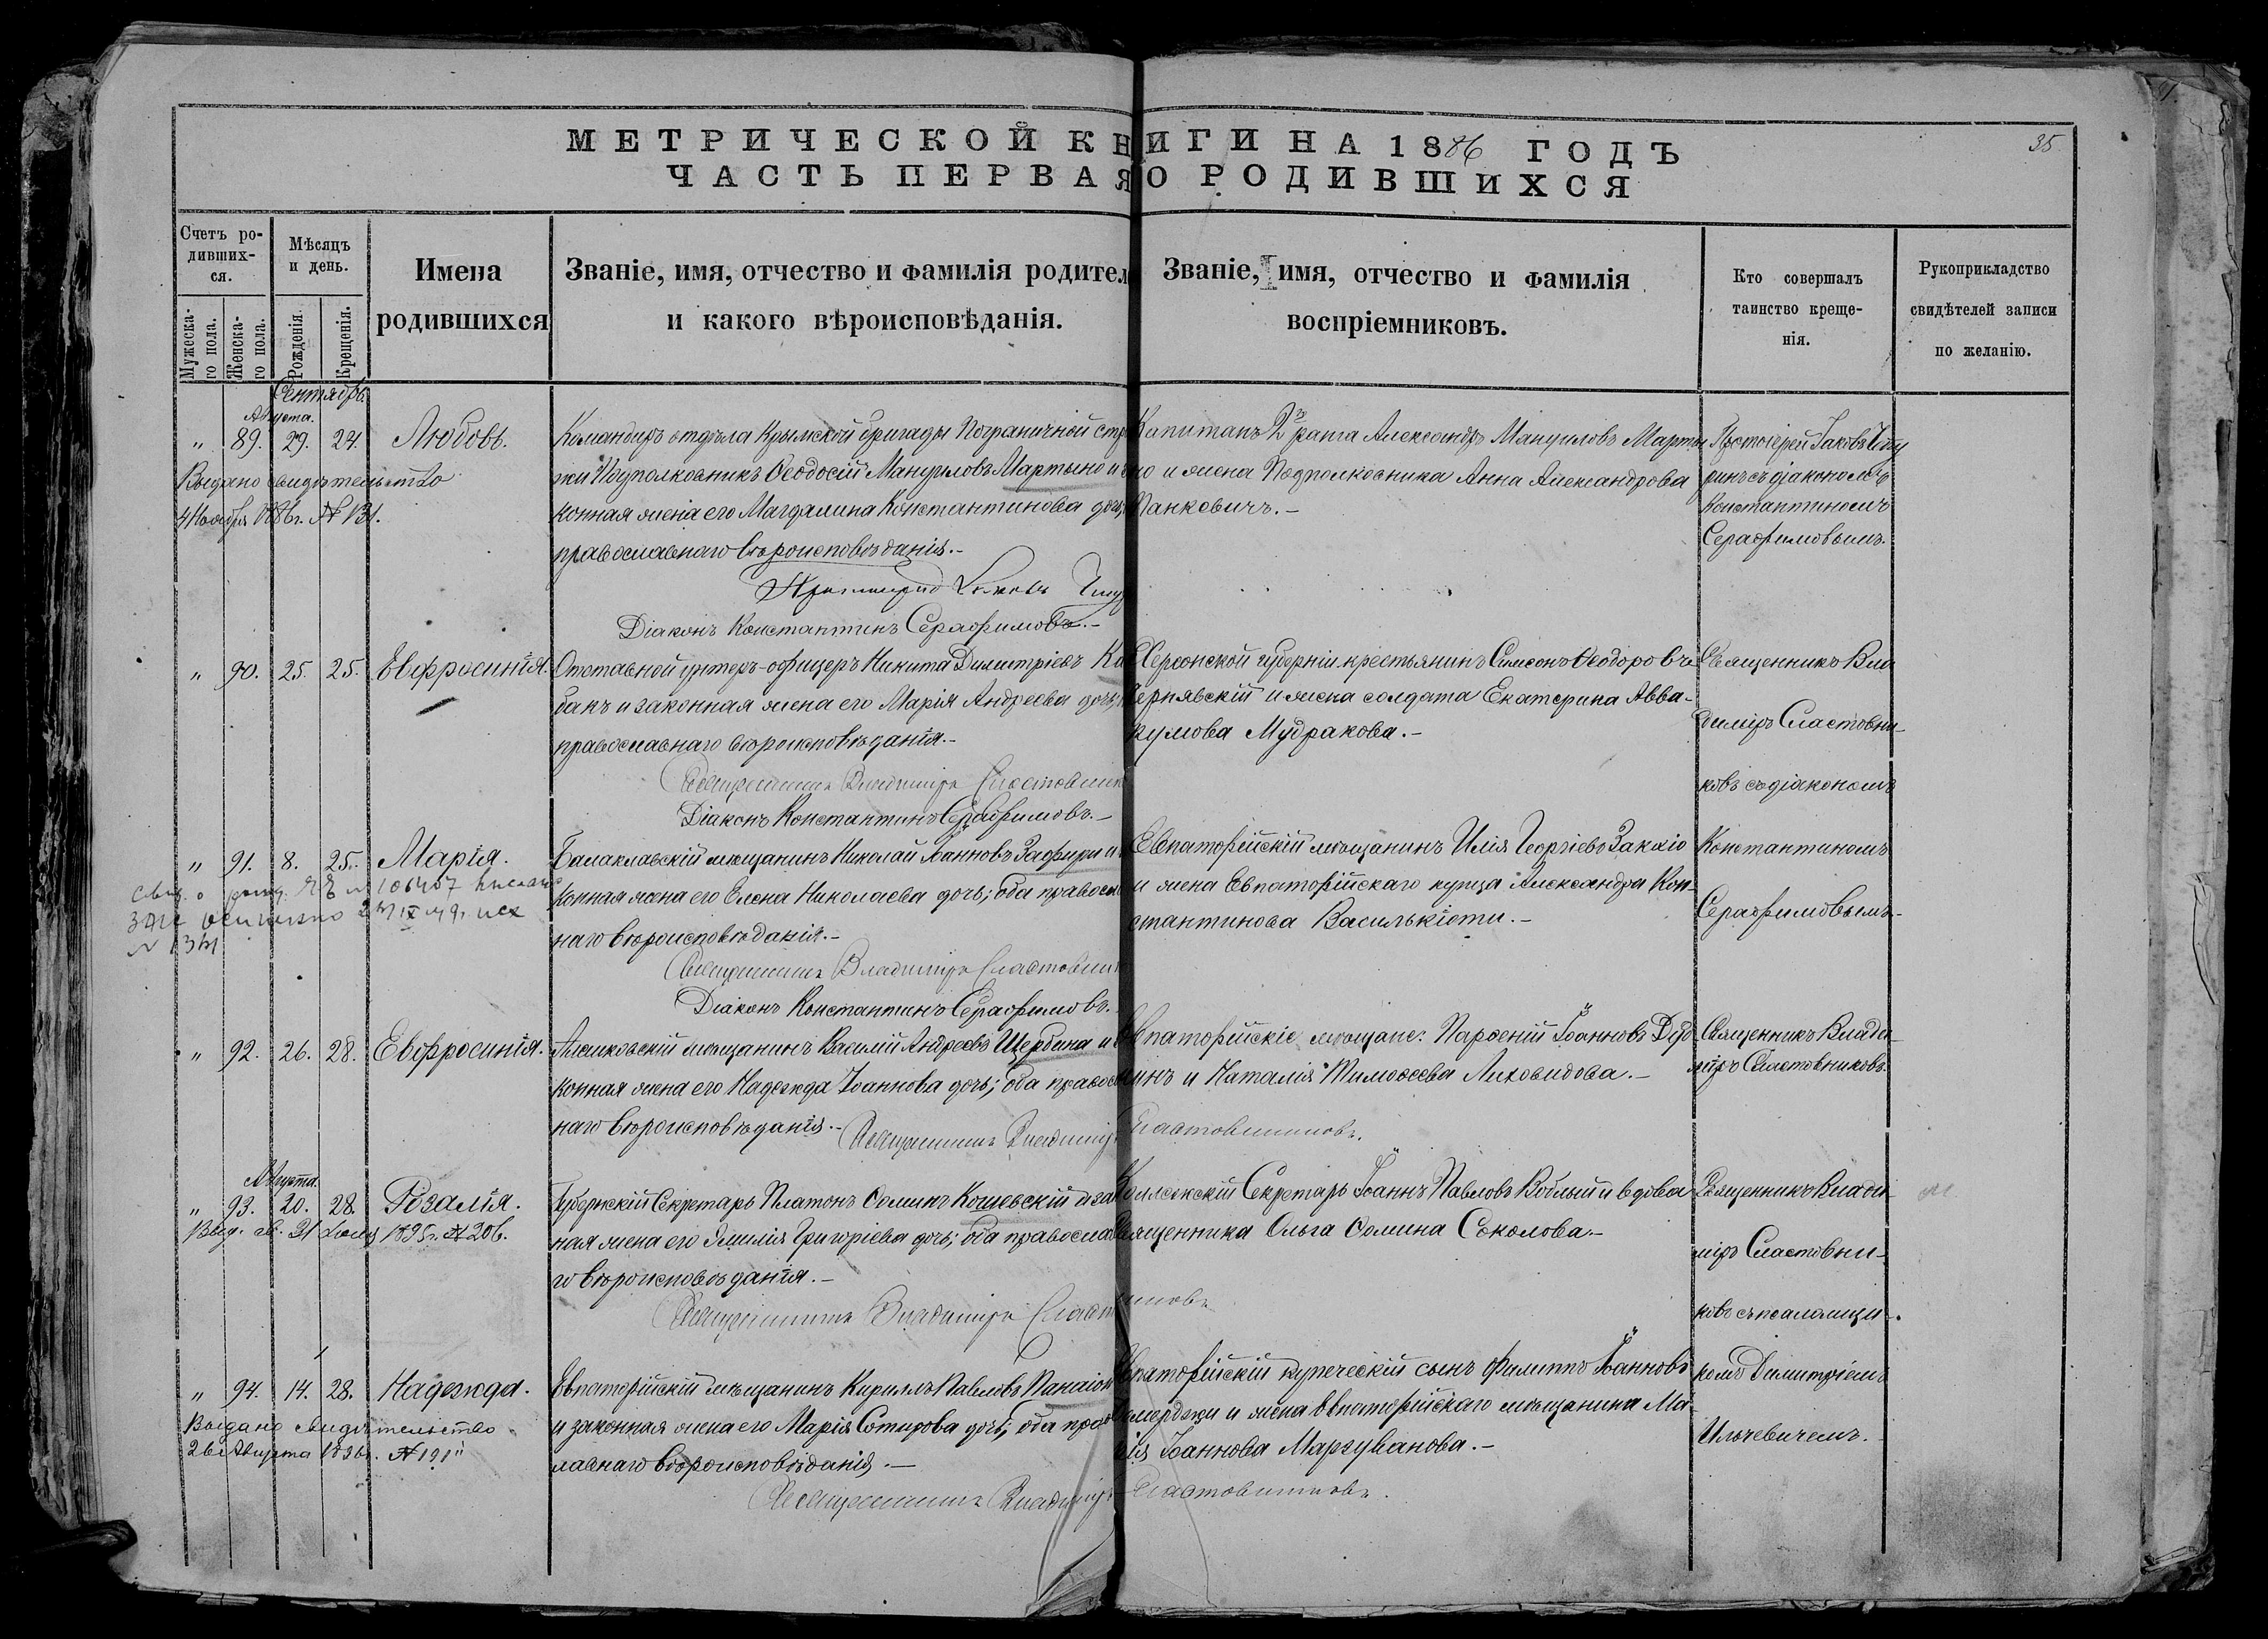 МЕТРИЧЕСКОЙ КНИГИ НА 1886 ГОДЪ
35
ЧАСТЬ ПЕРВАЯ О РОДИВШИХСЯ
Счетъ ро-
дивших-
ся.
Мужеска-
го пола.
Женска-
го пола.
Мѣсяцъ
и день.
Рожденія.
Крещенія.
Имена
родившихся
Званіе, имя, отчество и фамилія родител
и какого вѣроисповѣданія.
Званіе, имя, отчество и фамилія
воспріемниковъ.
Кто совершалъ
таинство креще-
нія.
Рукоприкладство
свидѣтелей записи
по желанію.
Сентябрь.
Августа.
„ 89. 29. 24. Любовь.
Выдано свидѣтельство
4 Ноября 1886г. № 131.
Командиръ отдѣла Крымской бригады Пограничной стра
жи Подполковникъ Ѳеодосій Мануиловъ Мартыно и за
конная жена его Магдалина Константинова дочь,
православнаго вѣроисповѣданія.-
Протоіерей Іаковъ
Діаконъ Константинъ Серафимовъ.-
Капитанъ 2го ранга Александръ Мануиловъ Марты
но и жена Подполковника Анна Александрова
Панкевичъ.-
Протоіерей Іаковъ
ринъ съ діакономъ
Константиномъ
Серафимовымъ.
„ 90. 25. 25. Евфросинія.
Отставной унтеръ-офицеръ Никита Димитріевъ Ка
банъ и законная жена его Марія Андреева дочь,
православнаго вѣроисповѣданія.-
Священникъ Владиміръ Сластовник
Діаконъ Константинъ Серафимовъ.-
Херсонской губерніи крестьянинъ Симеонъ Ѳеодоровъ
Чернявскій и жена солдата Екатерина Авва-
кумова Мудракова.-
Священникъ Вла
диміръ Сластовни-
ковъ съ діакономъ
Константиномъ
Серафимовымъ.-
„ 91. 8. 25. Марія.
№ 106407
Балаклавскій мѣщанинъ Николай Іоанновъ Зафири и
конная жена его Елена Николаева дочь; оба правосла
наго вѣроисповѣданія.-
Священникъ Владиміръ Сластовник
Діаконъ Константинъ Серафимовъ.
Евпаторійскій мѣщанинъ Илія Георгіевъ Заккіо
и жена Евпаторійскаго купца Александра Кон-
стантинова Василькіоти.-
„ 92. 26. 28. Евфросинія.
Алешковскій мѣщанинъ Василій Андреевъ Щербина и
конная жена его Надежда Іоаннова дочь; оба правосл
наго вѣроисповѣданія.-
Священникъ Владиміръ Сластовниковъ.
Евпаторійскіе мѣщане: Парѳеній Іоанновъ
инъ и Наталія Тимоѳеева Лиховидова.-
Священникъ Влади-
міръ Сластовниковъ.
Августа.
„ 93. 20. 28. Розалія.
Выд. св. 21 1895г. № 206.
Губернскій Секретарь Платонъ Ѳоминъ Кошевскій и зак
ная жена его Эмилія Григоріева дочь; оба правосла
го вѣроисповѣданія.-
Священникъ Владиміръ Сластовниковъ
Коллежскій Секретарь Іоаннъ Павловъ Воблый и вдова
священника Ольга Ѳомина Соколова.-
Священникъ Влади-
міръ Сластовни-
ковъ съ псаломщи-
комъ Димитріемъ
Ильчевичемъ.
„ 94. 14. 28. Надежда.
Выдано свидѣтельство
26 Августа № 191
Евпаторійскій мѣщанинъ Кириллъ Павловъ
и законная жена его Марія Сотирова дочь; оба прав
лавнаго вѣроисповѣданія.-
Священникъ Владиміръ Сластовниковъ.
Евпаторійскій купеческій сынъ Филиппъ Іоанновъ
и жена Евпаторійскаго мѣщанина Ма-
рія Іоаннова Маргуванова.-